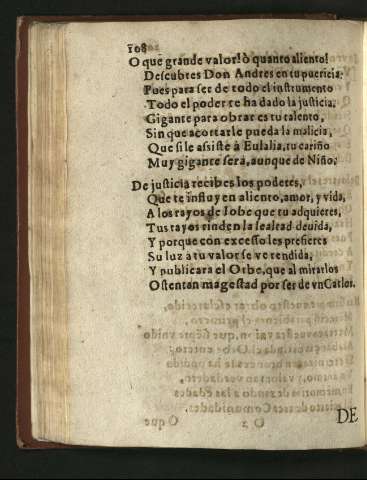 108
O què grande valor! ò quanto aliento!
Descubres Don Andres en tu puericia;
Pues para ser de todo el instrumento
Todo el poder te ha dado la justicia,
Gigante para obrar es tu talento,
Sin que acortarle pueda la malicia,
Que si le assiste à Eulalia, tu cariño
Muy gigante serà, aunque de Niño;
De justicia recibes los poderes,
Que te influyen aliento, amor, y vida,
A los rayos de Iobe que tu adquieres,
Tus rayos rinden la lealtad devida,
Y porque con excesso les prefieres
Su luz a tu valor se ve rendida,
Y publicara el Orbe, que al mirarlos
Ostentan magestad por ser de vn Carlos.
DE